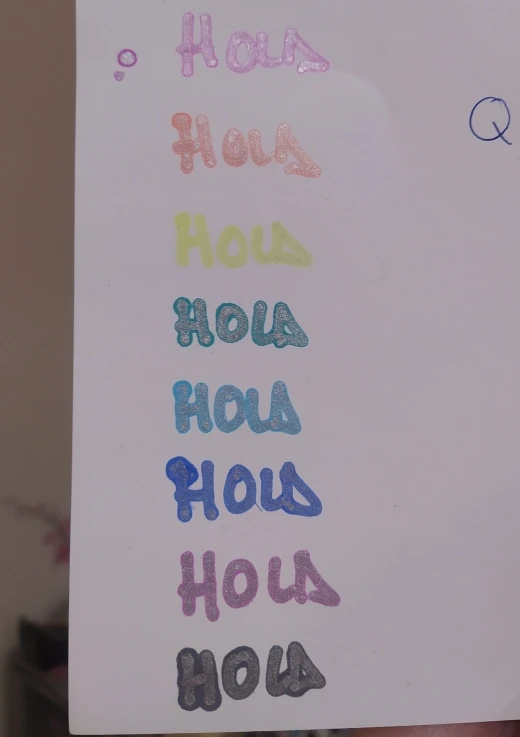 Hola
Hola
Q
Hola
Hola
Hola
Hola
Hola
Hola